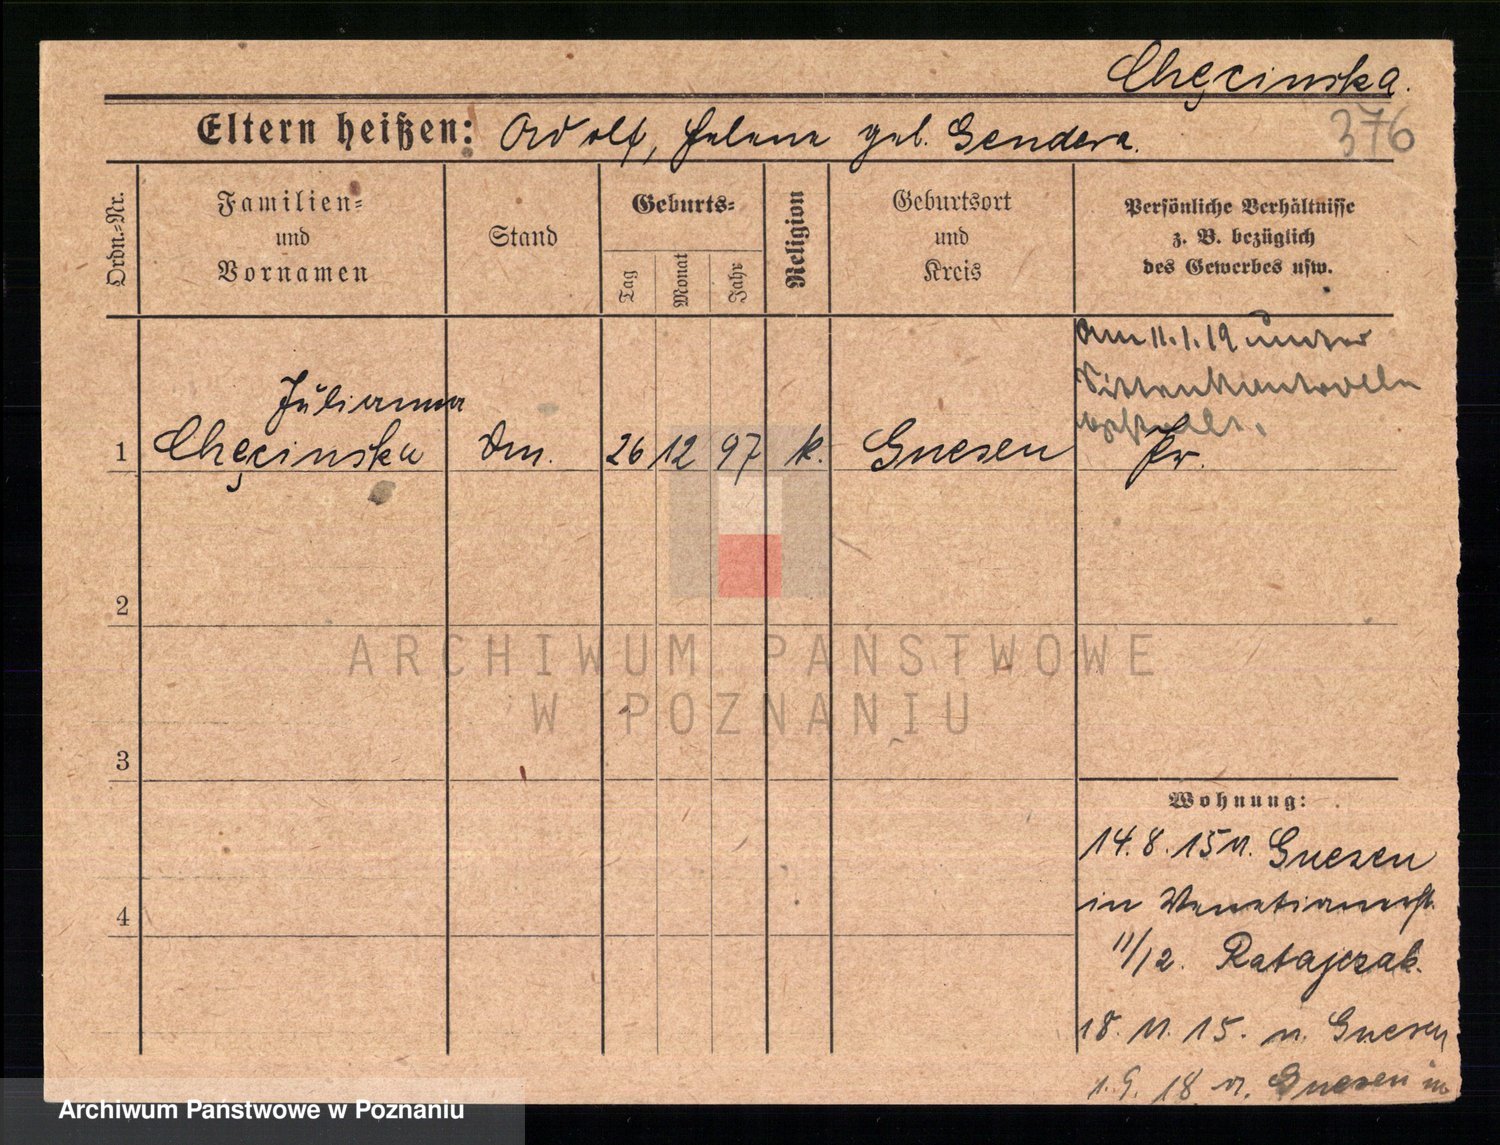 Chęcinska.
376
Eltern heißen: Adolf, Helene geb. Gendera.
Ordn.-Nr.
Familien-
und
Vornamen
Stand
Geburts-
Tag
Monat
Jahr
Religion
Geburtsort
und
Kreis
Persönliche Verhältnisse
z. B. bezüglich
des Gewerbes usw.
Am 11.1.19 unter
Sittenkontrolle
gestellt.
Julianna
1 Chęcinska Dm. 26 12 97 k. Gnesen Pr.
2
3
4
ARCHIWUM PAŃSTWOWE
W POZNANIU
Wohnung:
14.8.15 v. Gnesen
in Venetianerst.
11/12. Ratajczak.
18.11.15. n. Gnesen
1.9.18 v. Gnesen in
Archiwum Państwowe w Poznaniu